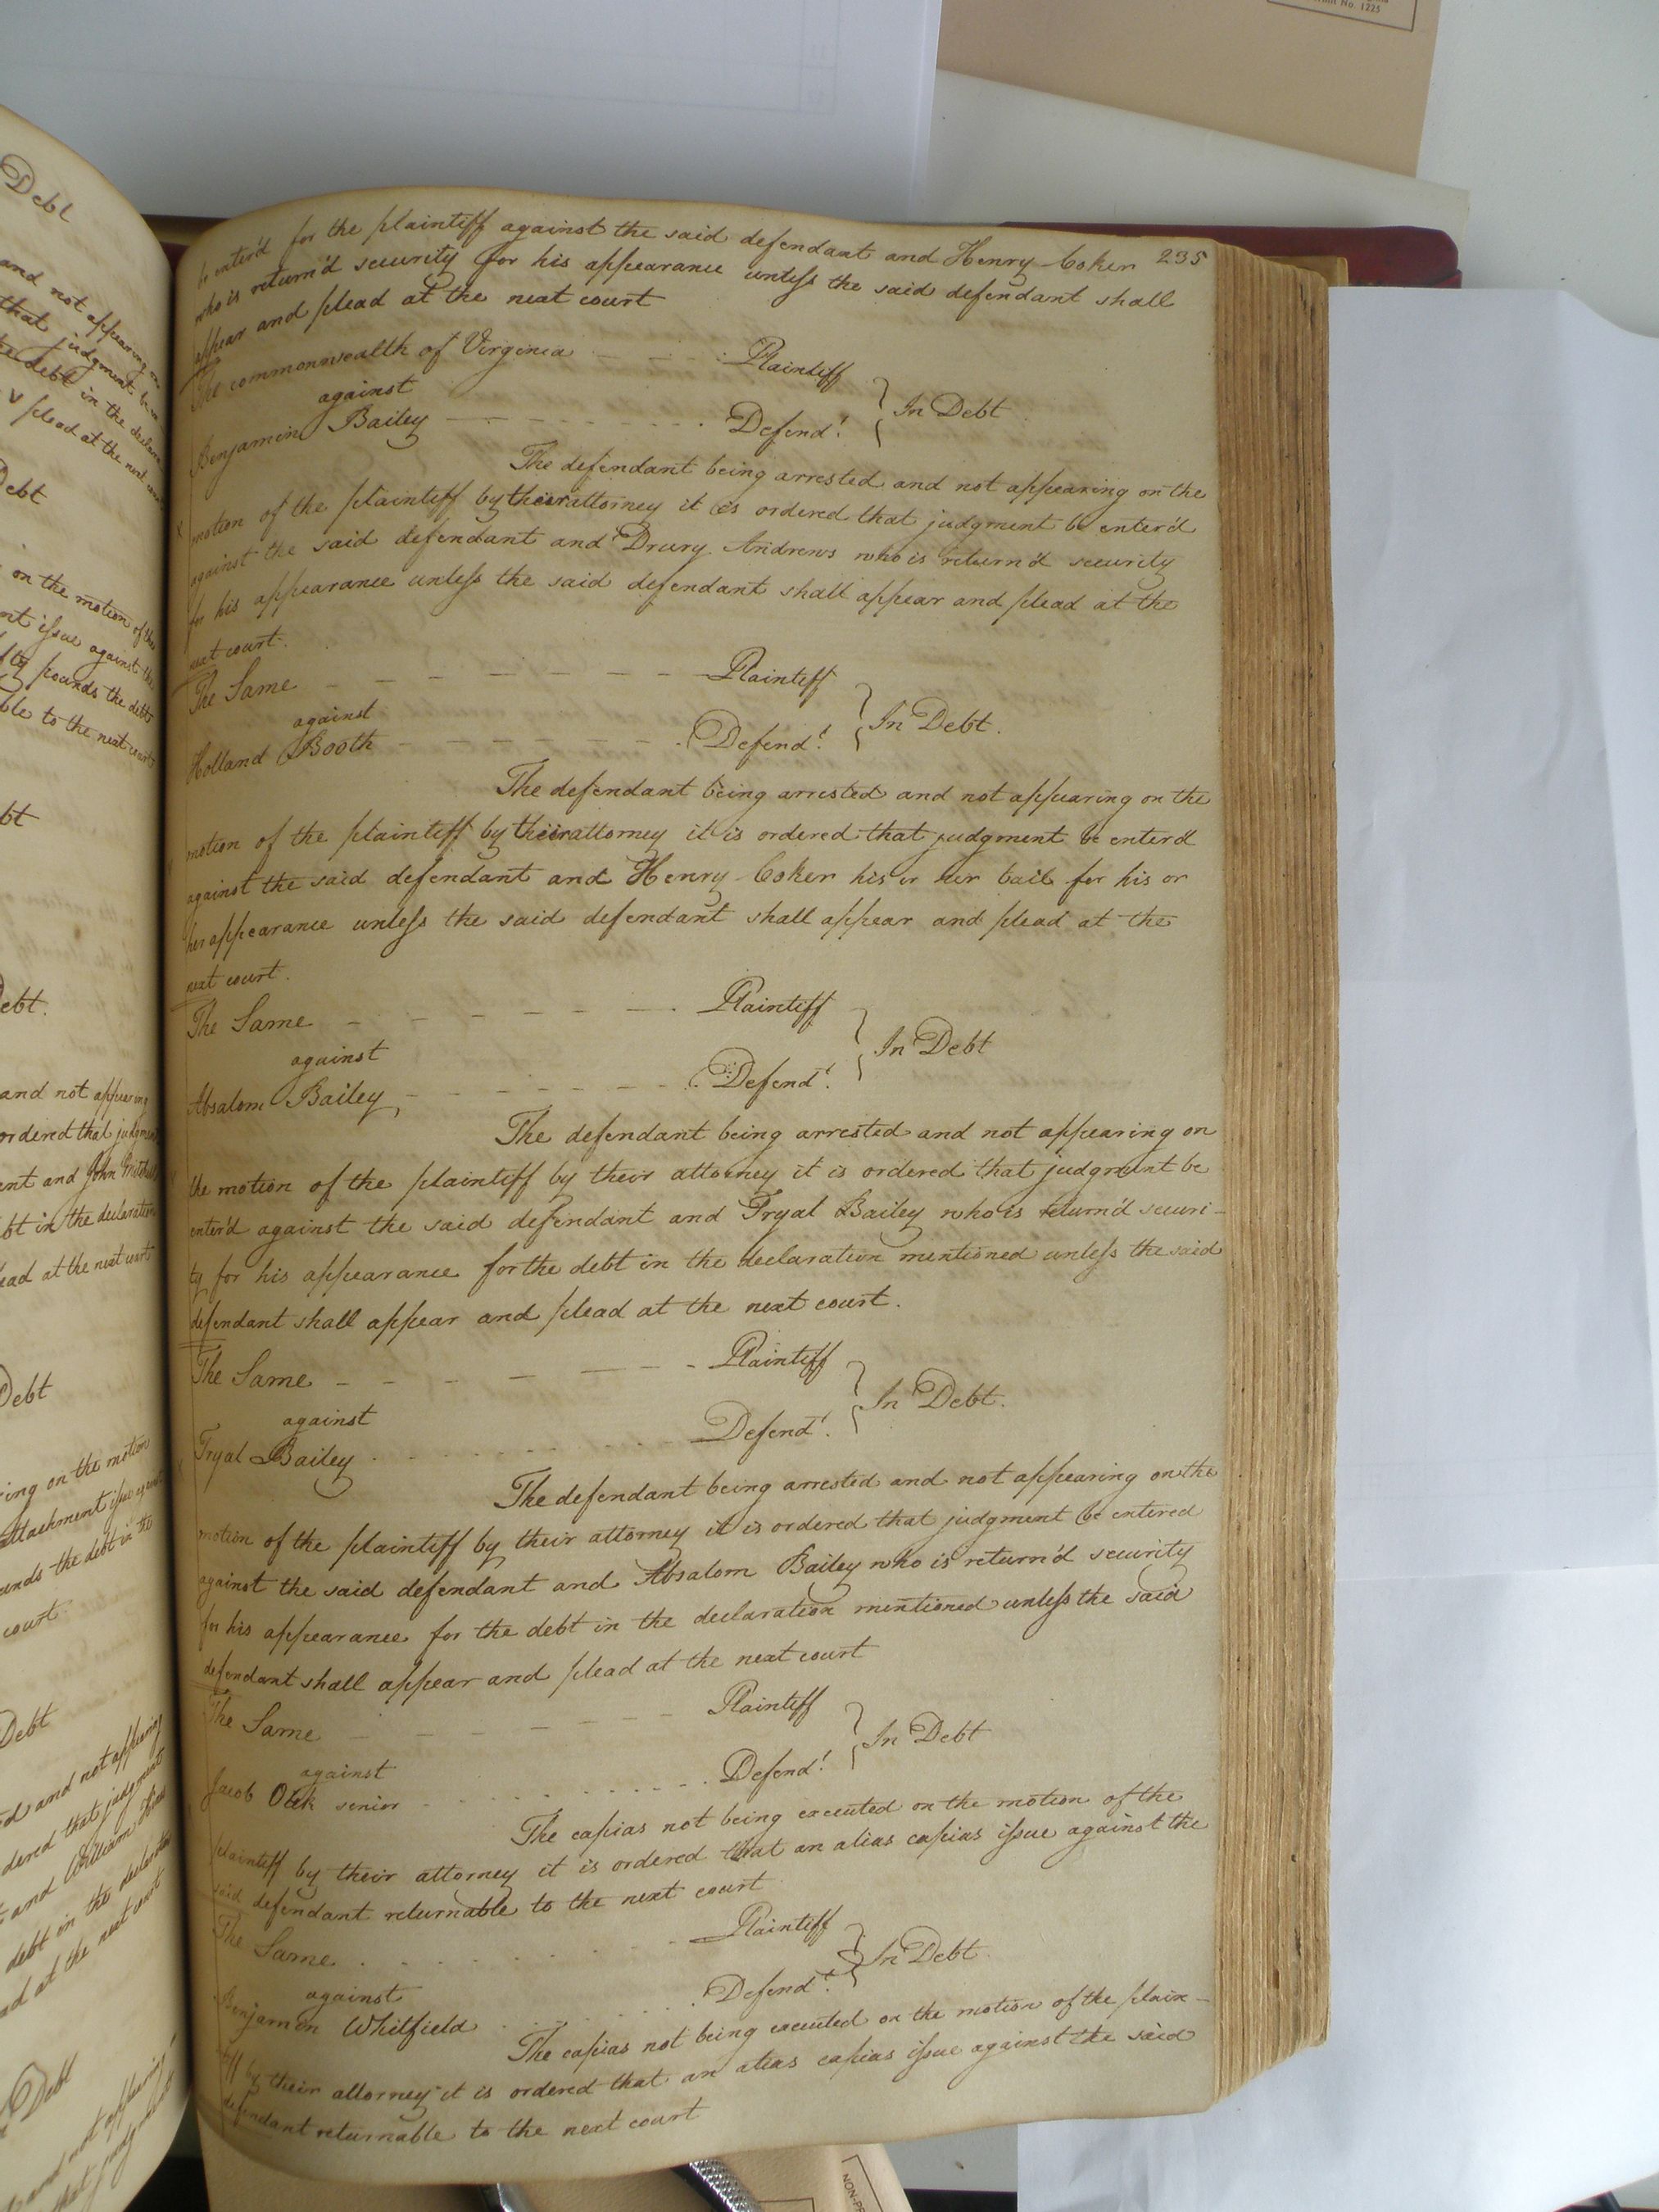 235
be enter'd for the plaintiff against the said defendant and Henry Coker
who is return'd security for his appearance unless the said defendant shall
appear and plead at the next court
The commonwealth of Virginia Plaintiff
against In Debt
Benjamin Bailey Defend.t
The defendant being arrested and not appearing on the
motion of the plaintiff by their attorney it is ordered that judgment be enter'd
against the said defendant and Drury Andrews who is return'd security
for his appearance unless the said defendant shall appear and plead at the
next court.
The Same Plaintiff
against In Debt.
Holland Booth Defend.t
The defendant being arrested and not appearing on the
motion of the plaintiff by their attorney it is ordered that judgment be enterd
against the said defendant and Henry Coker his or her bail for his or
her appearance unless the said defendant shall appear and plead at the
next court.
The Same Plaintiff
against In Debt
Absalom Bailey Defend.t
The defendant being arrested and not appearing on
the motion of the plaintiff by their attorney it is ordered that judgment be
enter'd against the said defendant and Tryal Bailey who is return'd securi-
ty for his appearance for the debt in the declaration mentioned unless the said
defendant shall appear and plead at the next court.
The Same Plaintiff
against In Debt.
Tryal Bailey Defend.t
The defendant being arrested and not appearing on the
motion of the plaintiff by their attorney it is ordered that judgment be entered
against the said defendant and Absalom Bailey who is return'd security
for his appearance for the debt in the declaration mentioned unless the said
defendant shall appear and plead at the next court
The Same Plaintiff
against In Debt
Jacob senior Defend.t
The capias not being executed on the motion of the
plaintiff by their attorney it is ordered that an alias capias issue against the
said defendant returnable to the next court
The Same Plaintiff
against In Debt
Benjamin Whitfield Defend.t
The capias not being executed on the motion of the plain-
tiff by their attorney it is ordered that an alias capias issue against the said
defendant returnable to the next court
Debt
and not appearing on
that judgment be
the debt in the declara
plead at the next court
Debt
on the motion of the
issue against the
pounds the debt
to the next court
bt
ebt.
and not appearing
ordered that judgment
ent and John
bt in the declaration
ead at the next court
Debt
ring on the motion
attachment issue
unds the debt in the
court
Debt
ed and not appearing
dered that judgment
and William
debt in the declaration
ad at the next court
Debt
and not appearing
that judgment
No. 1225